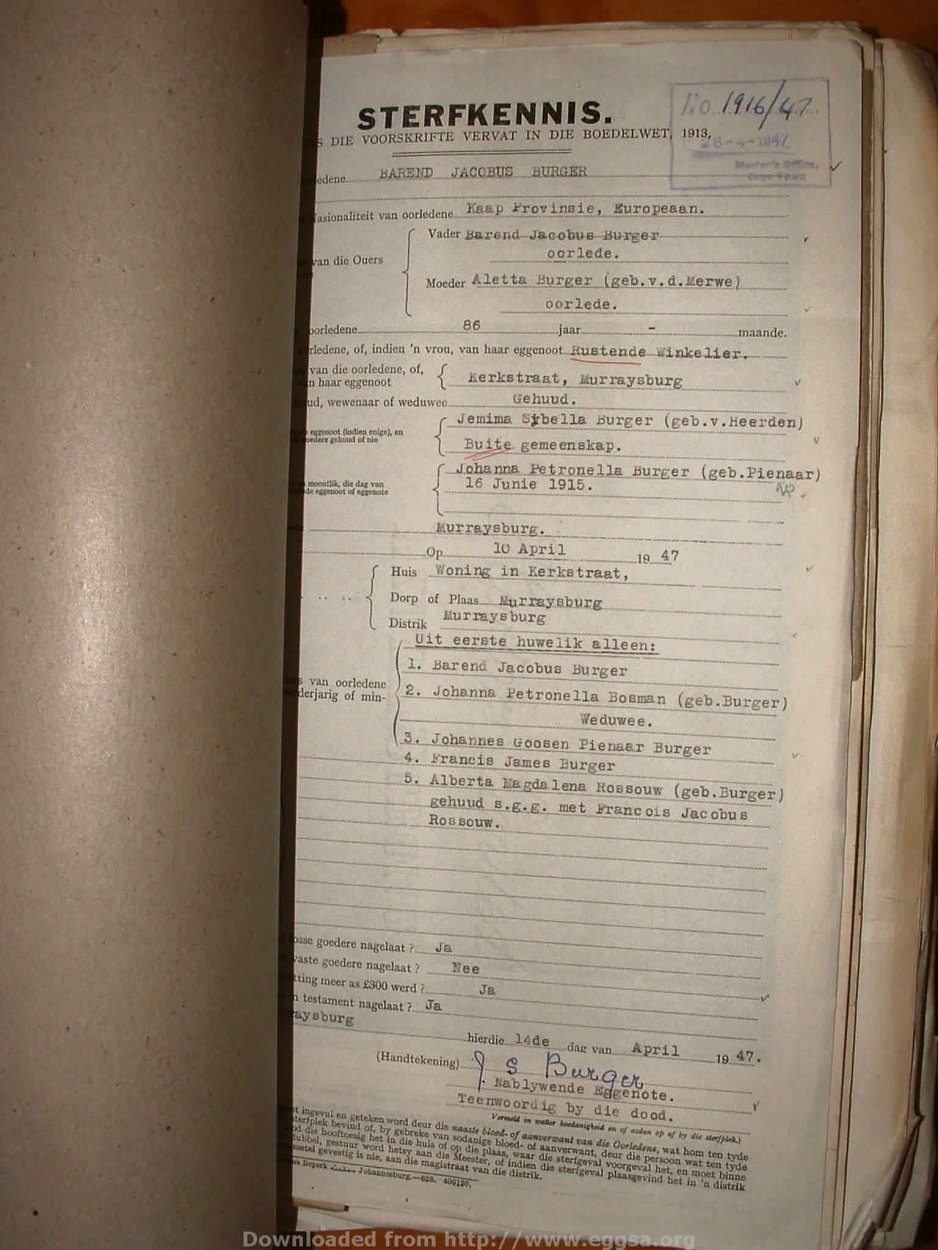 STERFKENNIS.
No 1916/47
S DIE VOORSKRIFTE VERVAT IN DIE BOEDELWET, 1913,
28-4-1947
Master's Office,
Cape Town
edene BAREND JACOBUS BURGER
Nasionaliteit van oorledene Kaap Provinsie, Europeaan.
Vader Barend Jacobus Burger
oorlede.
van die Ouers
Moeder Aletta Burger (geb.v.d.Merwe)
oorlede.
oorledene 86 jaar - maande.
rledene, of, indien 'n vrou, van haar eggenoot Rustende Winkelier.
van die oorledene, of,
n haar eggenoot
Kerkstraat, Murraysburg
ud, wewenaar of weduwee Gehuud.
Jemima Sybella Burger (geb.v.Heerden)
eggenoot (indien enige), en
oedere gehuud of nie
Buite gemeenskap.
Johanna Petronella Burger (geb.Pienaar)
moontlik, die dag van
de eggenoot of eggenote
16 Junie 1915.
Murraysburg.
Op 10 April 19 47
Huis Woning in Kerkstraat,
Dorp of Plaas Murraysburg
Distrik Murraysburg
Uit eerste huwelik alleen:
1. Barend Jacobus Burger
s van oorledene
derjarig of min-
2. Johanna Petronella Bosman (geb.Burger)
Weduwee.
3. Johannes Goosen Pienaar Burger
4. Francis James Burger
5. Alberta Magdalena Rossouw (geb.Burger)
gehuud s.g.g. met Francois Jacobus
Rossouw.
osse goedere nagelaat ? Ja
vaste goedere nagelaat ? Nee
tting meer as £300 werd ? Ja
n testament nagelaat ? Ja
raysburg
hierdie 14de dag van April 19 47.
(Handtekening) J S Burger
Nablywende Eggenote.
Teenwoordig by die dood.
Vermeld in watter hoedanigheid en of aldan op of by die sterfplek.)
t ingevul en geteken word deur die naaste bloed- of aanverwant van die Oorledene, wat hom ten tyde
terfplek bevind of, by gebreke van sodanige bloed- of aanverwant, deur die persoon wat ten tyde
od die hooftoesig het in die huis of op die plaas, waar die sterfgeval voorgeval het, en moet binne
lubbel, gestuur word hetsy aan die Meester, of indien die sterfgeval plaasgevind het in 'n distrik
setel gevestig is nie, aan die magistraat van die distrik.
rs Beperk Johannesburg.
Downloaded from http://www.eggsa.org